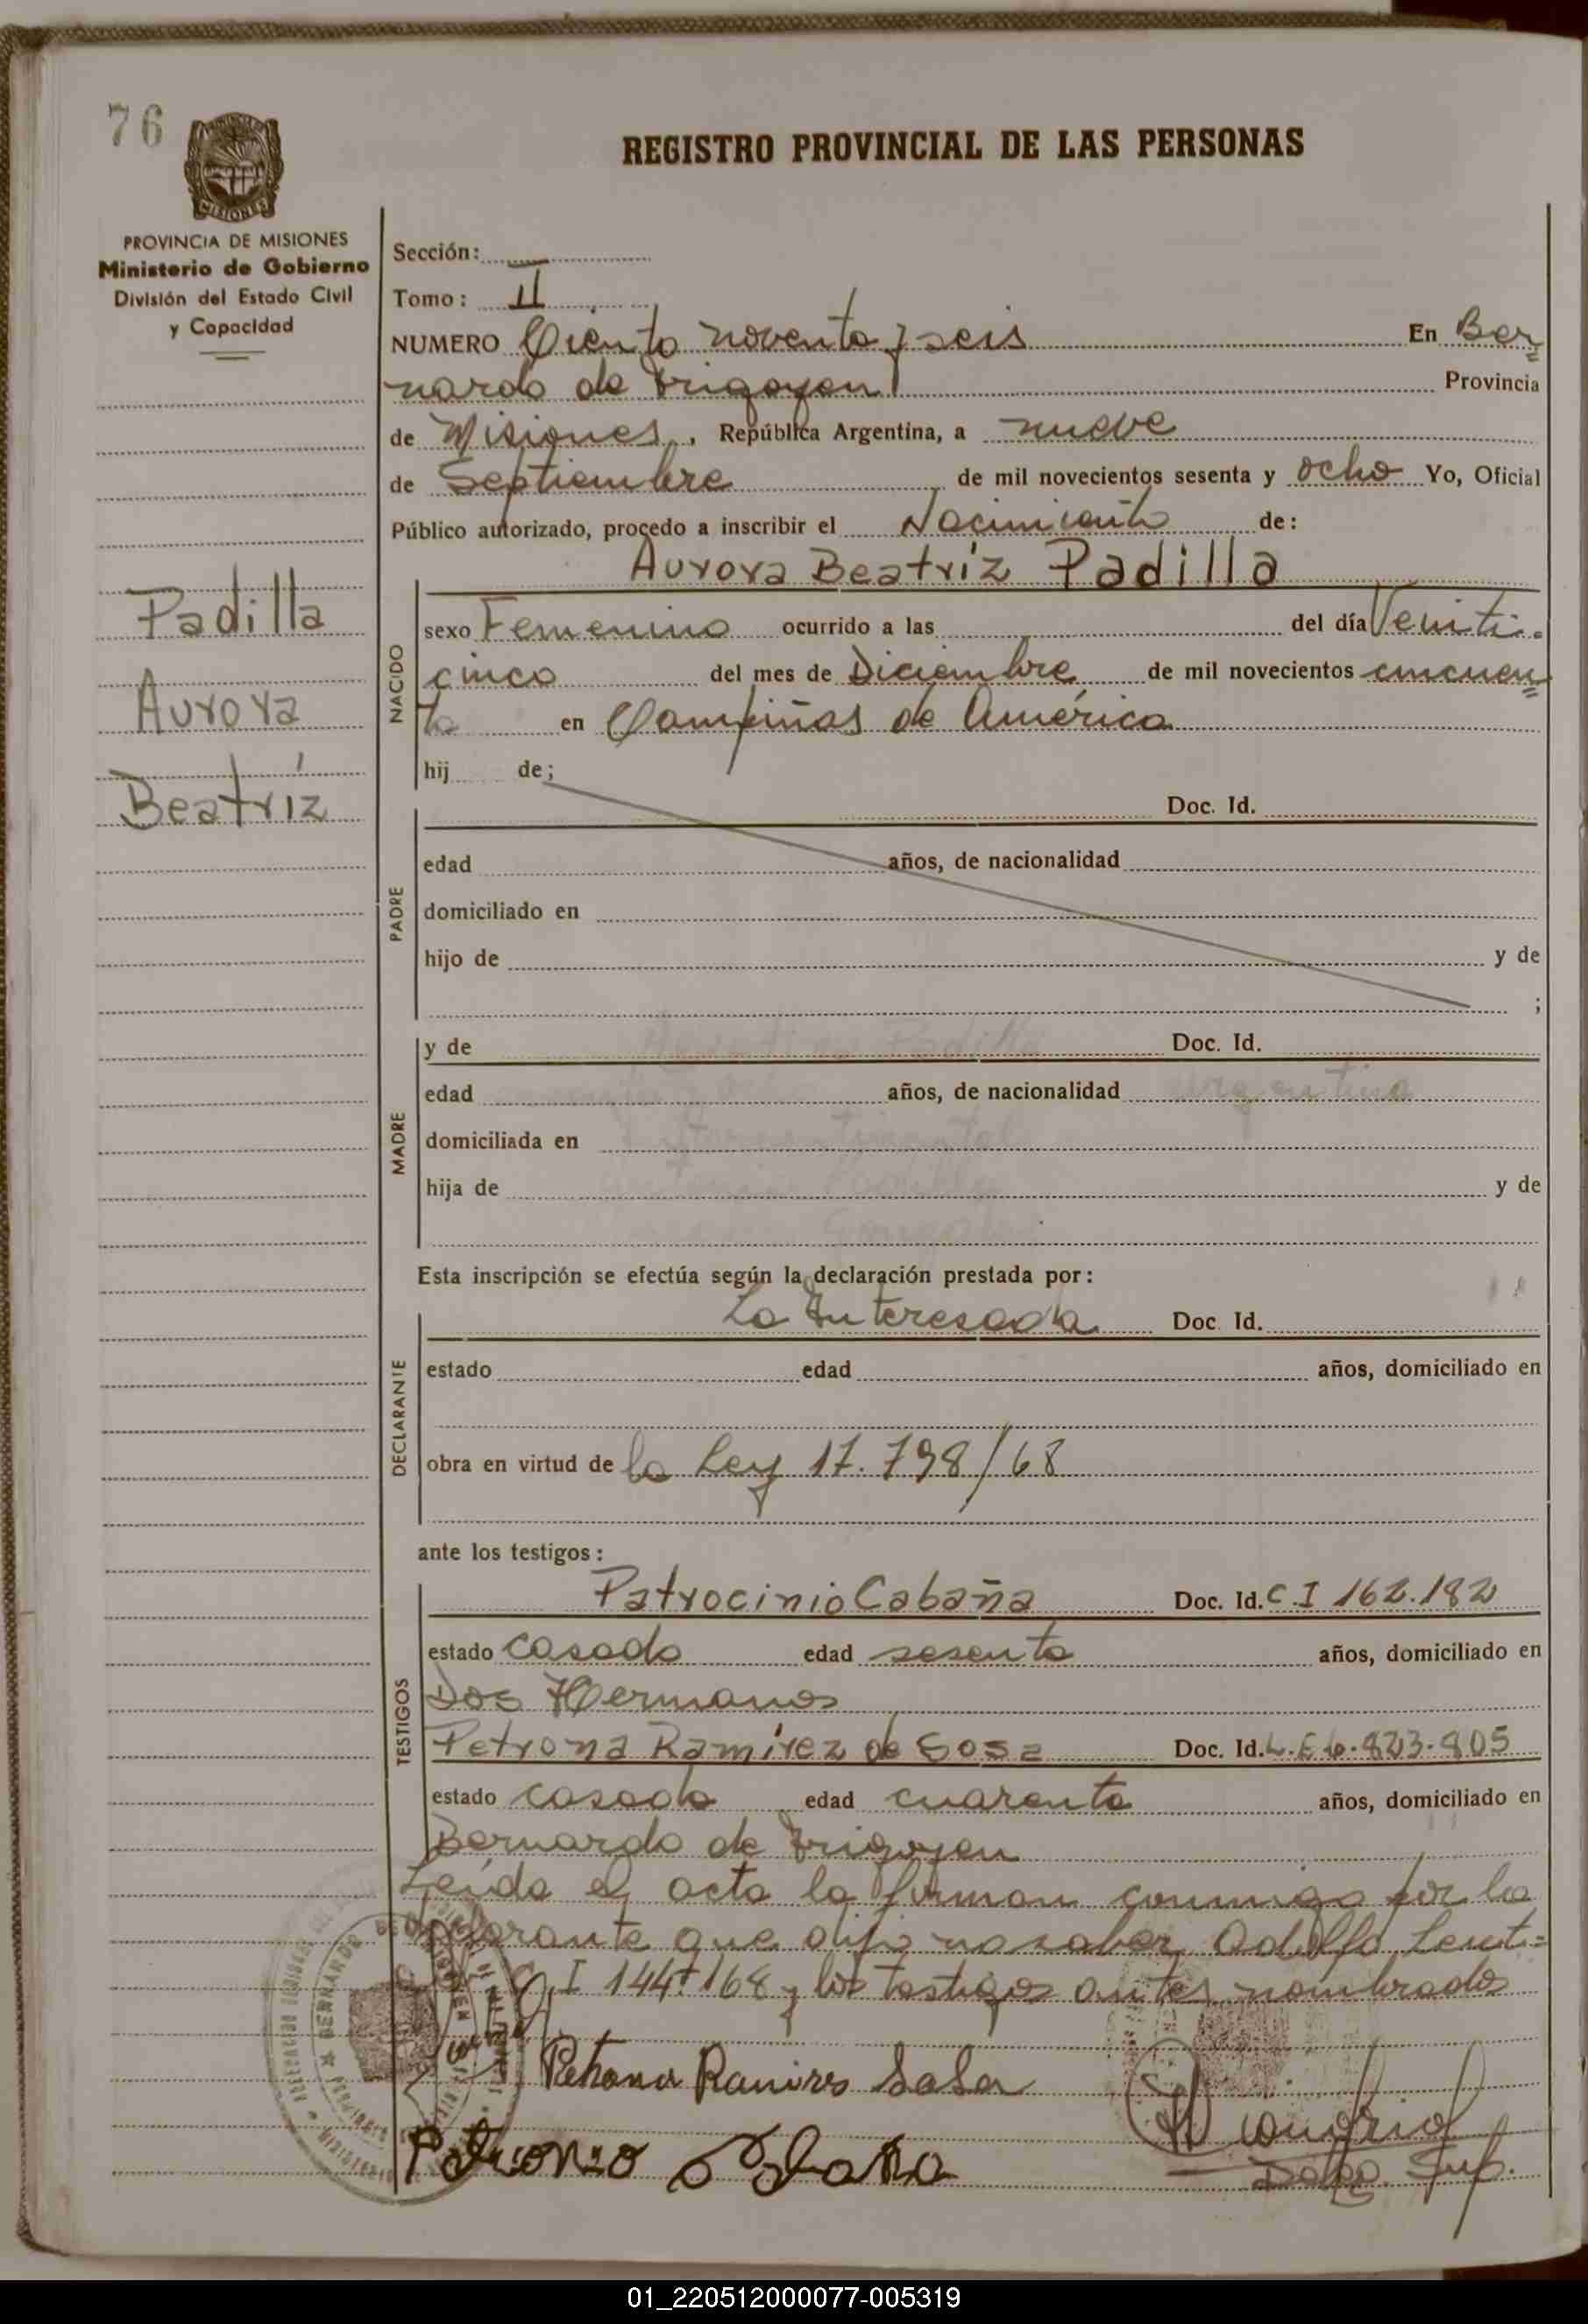 76
PROVINCIA DE MISIONES
Ministerio de Gobierno
División del Estado Civil
y Capacidad
REGISTRO PROVINCIAL DE LAS PERSONAS
Sección:
Tomo: II
NUMERO Ciento noventa y seis En Ber=
nardo de Irigoyen Provincia
de Misiones, República Argentina, a nueve
de Septiembre de mil novecientos sesenta y ocho Yo, Oficial
Público autorizado, procedo a inscribir el Nacimiento de:
Aurora Beatríz Padilla
Padilla
Aurora
Beatríz
NACIDO
sexo Femenino ocurrido a las del día Veinti-
cinco del mes de Diciembre de mil novecientos cincuen=
ta en Campiñas de América
hij de;
PADRE
Doc. Id.
edad años, de nacionalidad
domiciliado en
hijo de y de
;
MADRE
y de Doc. Id.
edad años, de nacionalidad
domiciliada en
hija de y de
Esta inscripción se efectúa según la declaración prestada por:
DECLARANTE
La Interesada Doc. Id.
estado edad años, domiciliado en
obra en virtud de la Ley 17.798/68
ante los testigos:
TESTIGOS
Patrocinio Cabaña Doc. Id. C.I 162.182
estado casado edad sesenta años, domiciliado en
Dos Hermanos
Petrona Ramírez de Sosa Doc. Id. 823.805
estado casada edad cuarenta años, domiciliado en
Bernardo de Irigoyen
Leída el acta la firman conmigo por la
declarante que dijo no saber Adolfo
C.I 144.168 y los testigos antes nombrados
Petrona Ramires SoSa
01_220512000077-005319